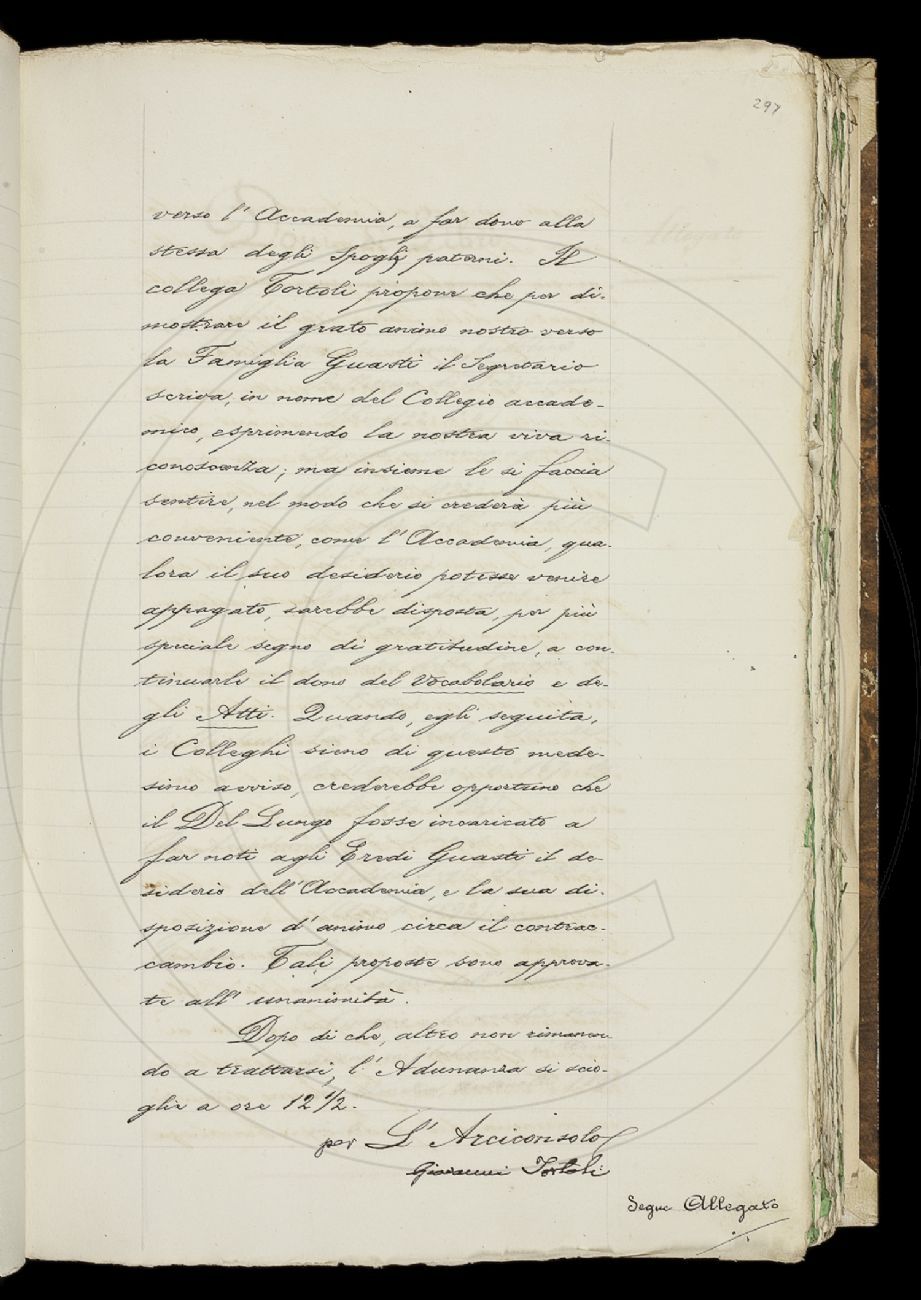 297
verso l' Accademia, a far dono alla
stessa degli Spogli paterni. Il
collega Tortoli propone che per di-
mostrare il grato animo nostro verso
la Famiglia Guasti il Segretario
scriva, in nome del Collegio accade-
mico, esprimendo la nostra viva ri-
conoscenza; ma insieme le si faccia
sentire, nel modo che si crederà più
conveniente, come l' Accademia, qua-
lora il suo desiderio potesse venire
appagato, sarebbe disposta, per più
speciale segno di gratitudine, a con-
tinuarle il dono del Vocabolario e de-
gli Atti. Quando, egli seguita,
i Colleghi sieno di questo mede-
simo avviso, crederebbe opportuno che
il Del Lungo fosse incaricato a
far noti agli Eredi Guasti il de-
siderio dell' Accademia, e la sua di-
sposizione d' animo circa il contrac-
cambio. Tali proposte sono approva-
te all' unanimità.
Dopo di che, altro non rimanen-
do a trattarsi, l' Adunanza si scio-
glie a ore 12 1/2.
per L' Arciconsolo
Giovanni Tortoli
Segue Allegato